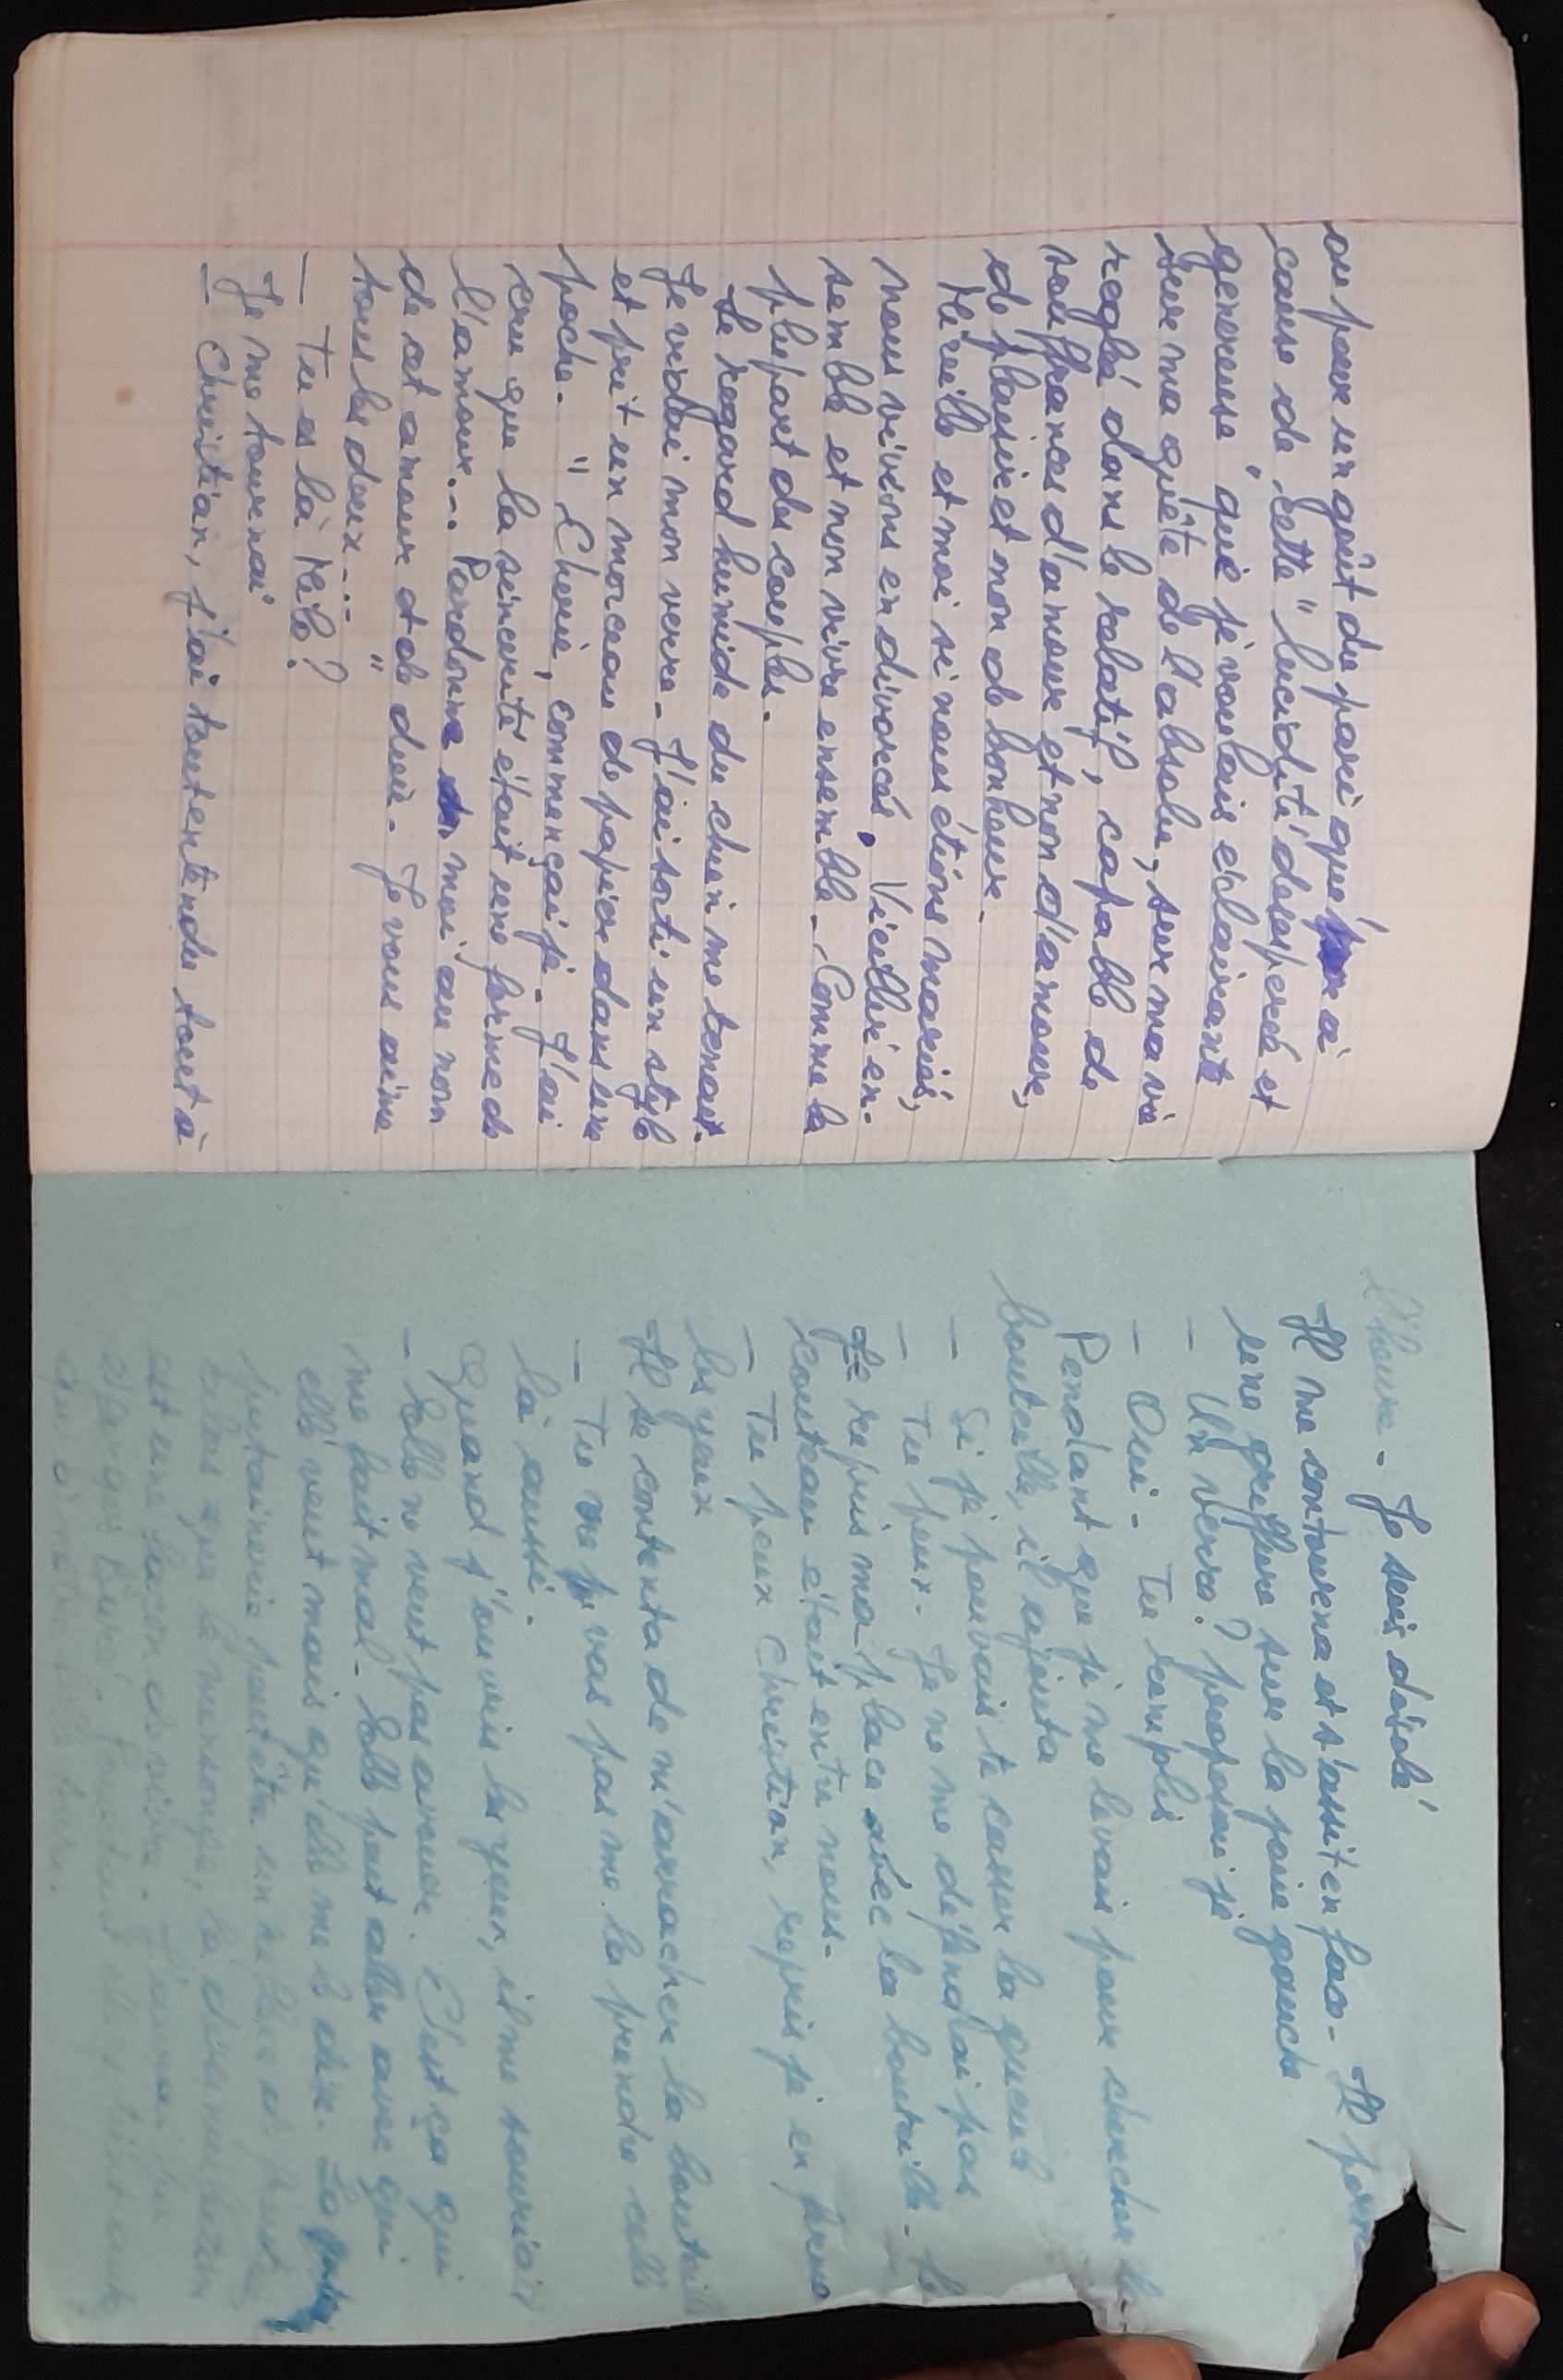 ou par un goût du pari que à
cause de cette "lucidité désesperée et
genereuse" que je voulais éclairante
sur ma quête de l'absolu, sur ma vie
reglée dans le relatif, capable de
souffrances d'amour et non d'amour,
de plaisir et non de bonheur.
Melo et moi si nous étions mariés,
nous vivions en divorcés. Vieillir en-
semble et non vivre ensemble. Comme la
plupart des couples.
Le regard humide du chien me tenait.
Je vidai mon verre. J'ai sorti un stylo
et prit un morceau de papier dans une
poche. "Cherie, commençai je. J'ai
cru que la sincerité était une forme de
l'amour... Pardonne moi au nom
de cet amour et de duri. Je vous aime
tous les deux..."
— Tu es là Melo?
Je me tournai
— Christian, j'ai tout entendu tout à
l'heure. Je suis désolé
Il me contourna et s'assit en face. Il porte
une griffure sur la joue gauche
— Un verre? proposai je
— Oui. Tu remplis
Pendant que je me levais pour chercher la
bouteille, il ajouta
— Si je pouvais te casser la gueule
— Tu peux. Je ne me défendrai pas
Je repris ma place avec la bouteille. Le
couteau était entre nous.
— Tu peux Christian, repris je en fermant
les yeux
Il se contenta de m'arracher la bouteille
— Tu ne vas pas me la prendre celle
là aussi.
Quand j'ouvris les yeux, il me souriait
— Elle ne veut pas avouer. C'est ça qui
me fait mal. Elle peut aller avec qui
elle veut mais qu'elle me le dise. La
putainerie peut être un
hélas que le mensonge, la dissimulation
est une façon de vivre.